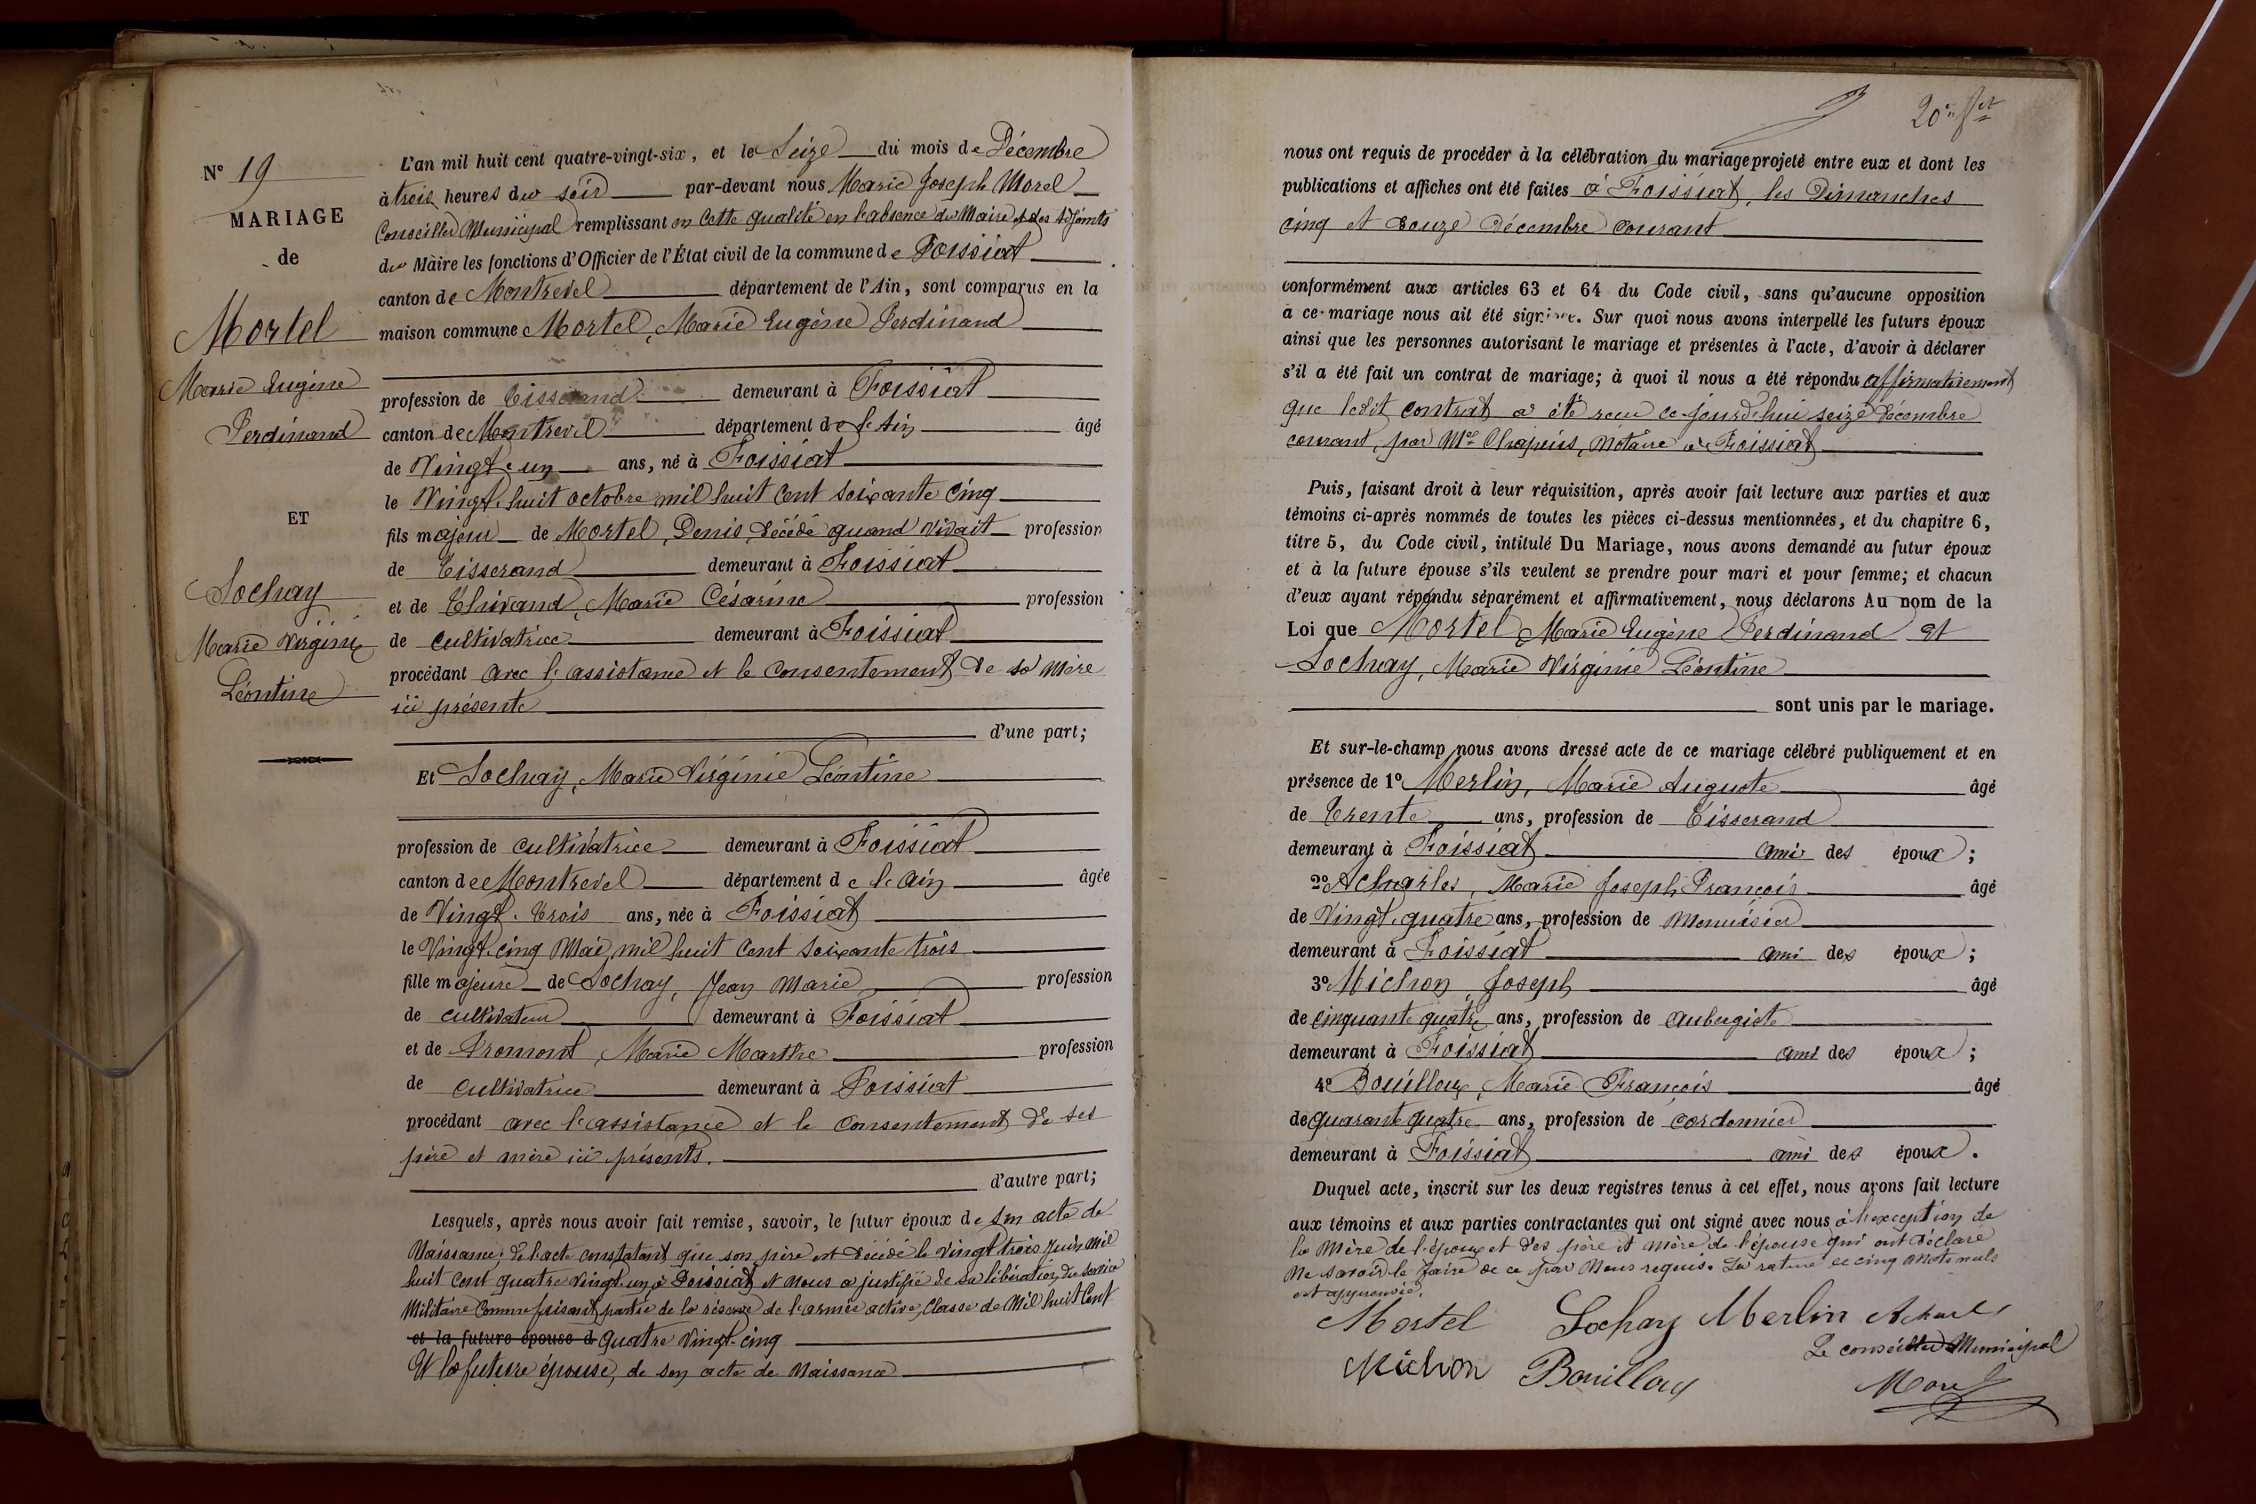 N° 19
MARIAGE
de
Mortel
Marie Eugène
Ferdinand
ET
Sochay
Marie Virginie
Léontine
L'an mil huit cent quatre-vingt-six, et le Seize du mois de Décembre
à trois heures du soir par-devant nous Marie Joseph Morel
Conseiller Municipal remplissant en cette qualité en l'absence du Maire et des Adjoints
du Maire les fonctions d'Officier de l'État civil de la commune de Foissiat
canton de Montrevel département de l'Ain, sont comparus en la
maison commune Mortel, Marie Eugène Ferdinand
profession de Tisserand demeurant à Foissiat
canton de Montrevel département de l'Ain âgé
de Vingt-un ans, né à Foissiat
le Vingt-huit octobre mil huit cent soixante cinq
fils majeur de Mortel, Denis, décédé quand vivait profession
de Tisserand demeurant à Foissiat
et de Thivand, Marie Césarine profession
de cultivatrice demeurant à Foissiat
procédant avec l'assistance et le consentement de sa mère
ici présente
d'une part;
Et Sochay, Marie Virginie Léontine
profession de cultivatrice demeurant à Foissiat
canton de Montrevel département de l'Ain âgée
de Vingt-trois ans, née à Foissiat
le Vingt-cinq Mai mil huit cent soixante trois
fille majeure de Sochay, Jean Marie profession
de cultivateur demeurant à Foissiat
et de Fromont, Marie Marthe profession
de cultivatrice demeurant à Foissiat
procédant avec l'assistance et le consentement de ses
père et mère ici présents.
d'autre part;
Lesquels, après nous avoir fait remise, savoir, le futur époux de son acte de
Naissance; de l'acte constatant que son père est décédé le vingt trois Juin mil
huit cent quatre vingt-un à Foissiat et nous a justifié de sa libération du service
Militaire comme faisant partie de la réserve de l'armée active, classe de Mil huit Cent
et la future épouse d quatre vingt-cinq
Et la future épouse, de son acte de Naissance
20e fet
nous ont requis de procéder à la célébration du mariage projeté entre eux et dont les
publications et affiches ont été faites à Foissiat, les Dimanches
cinq et douze Décembre courant
conformément aux articles 63 et 64 du Code civil, sans qu'aucune opposition
à ce mariage nous ait été signifiée. Sur quoi nous avons interpellé les futurs époux
ainsi que les personnes autorisant le mariage et présentes à l'acte, d'avoir à déclarer
s'il a été fait un contrat de mariage; à quoi il nous a été répondu affirmativement
que ledit contrat a été reçu ce jourd'hui seize Décembre
courant, par Me Chapuis, Notaire à Foissiat
Puis, faisant droit à leur réquisition, après avoir fait lecture aux parties et aux
témoins ci-après nommés de toutes les pièces ci-dessus mentionnées, et du chapitre 6,
titre 5, du Code civil, intitulé Du Mariage, nous avons demandé au futur époux
et à la future épouse s'ils veulent se prendre pour mari et pour femme; et chacun
d'eux ayant répondu séparément et affirmativement, nous déclarons Au nom de la
Loi que Mortel Marie Eugène Ferdinand et
Sochay, Marie Virginie Léontine
sont unis par le mariage.
Et sur-le-champ nous avons dressé acte de ce mariage célébré publiquement et en
présence de 1° Merlin, Marie Auguste âgé
de Trente ans, profession de Tisserand
demeurant à Foissiat ami des époux;
2° Acharles, Marie Joseph François âgé
de Vingt-quatre ans, profession de Menuisier
demeurant à Foissiat ami des époux;
3° Michon, Joseph âgé
de cinquante quatre ans, profession de aubergiste
demeurant à Foissiat ami des époux;
4° Bouilloux, Marie François âgé
de quarante quatre ans, profession de cordonnier
demeurant à Foissiat ami des époux.
Duquel acte, inscrit sur les deux registres tenus à cet effet, nous avons fait lecture
aux témoins et aux parties contractantes qui ont signé avec nous à l'exception de
la Mère de l'époux et des père et mère de l'épouse qui ont déclaré
Ne savoir le faire de ce par Nous requis. La rature de cinq mots nuls
est approuvée.
Mortel Sochay Merlin Acharles
Le conseiller Municipal
Michon Bouilloux
Morel